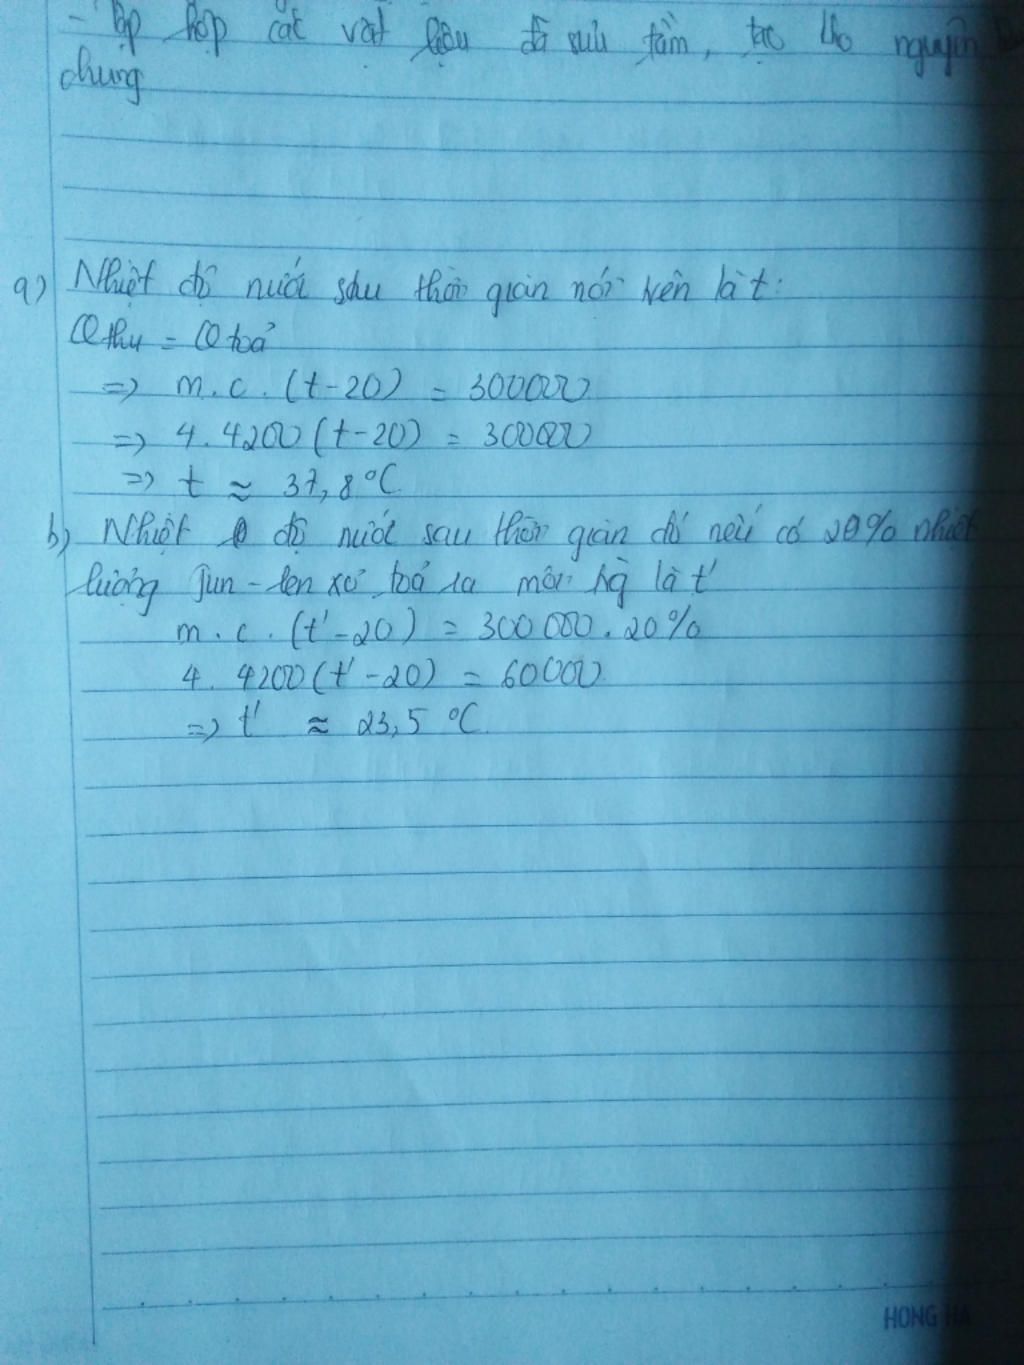 - Tập hợp các vật liệu đã sưu tầm, tạo kho nguyên liệu
chung
a) Nhiệt độ nước sau thời gian nói trên là t:
Qthu = Qtoả
=> m.c.(t-20) = 300000
=> 4.4200(t-20) = 300000
=> t ≈ 37,8°C
b) Nhiệt độ nước sau thời gian đó nếu có 20% nhiệt
lượng Jun-len xơ toả ra môi là t'
m.c.(t'-20) = 300000.20%
4. 4200(t'-20) = 60000
=> t' ≈ 23,5 °C
HONG HA